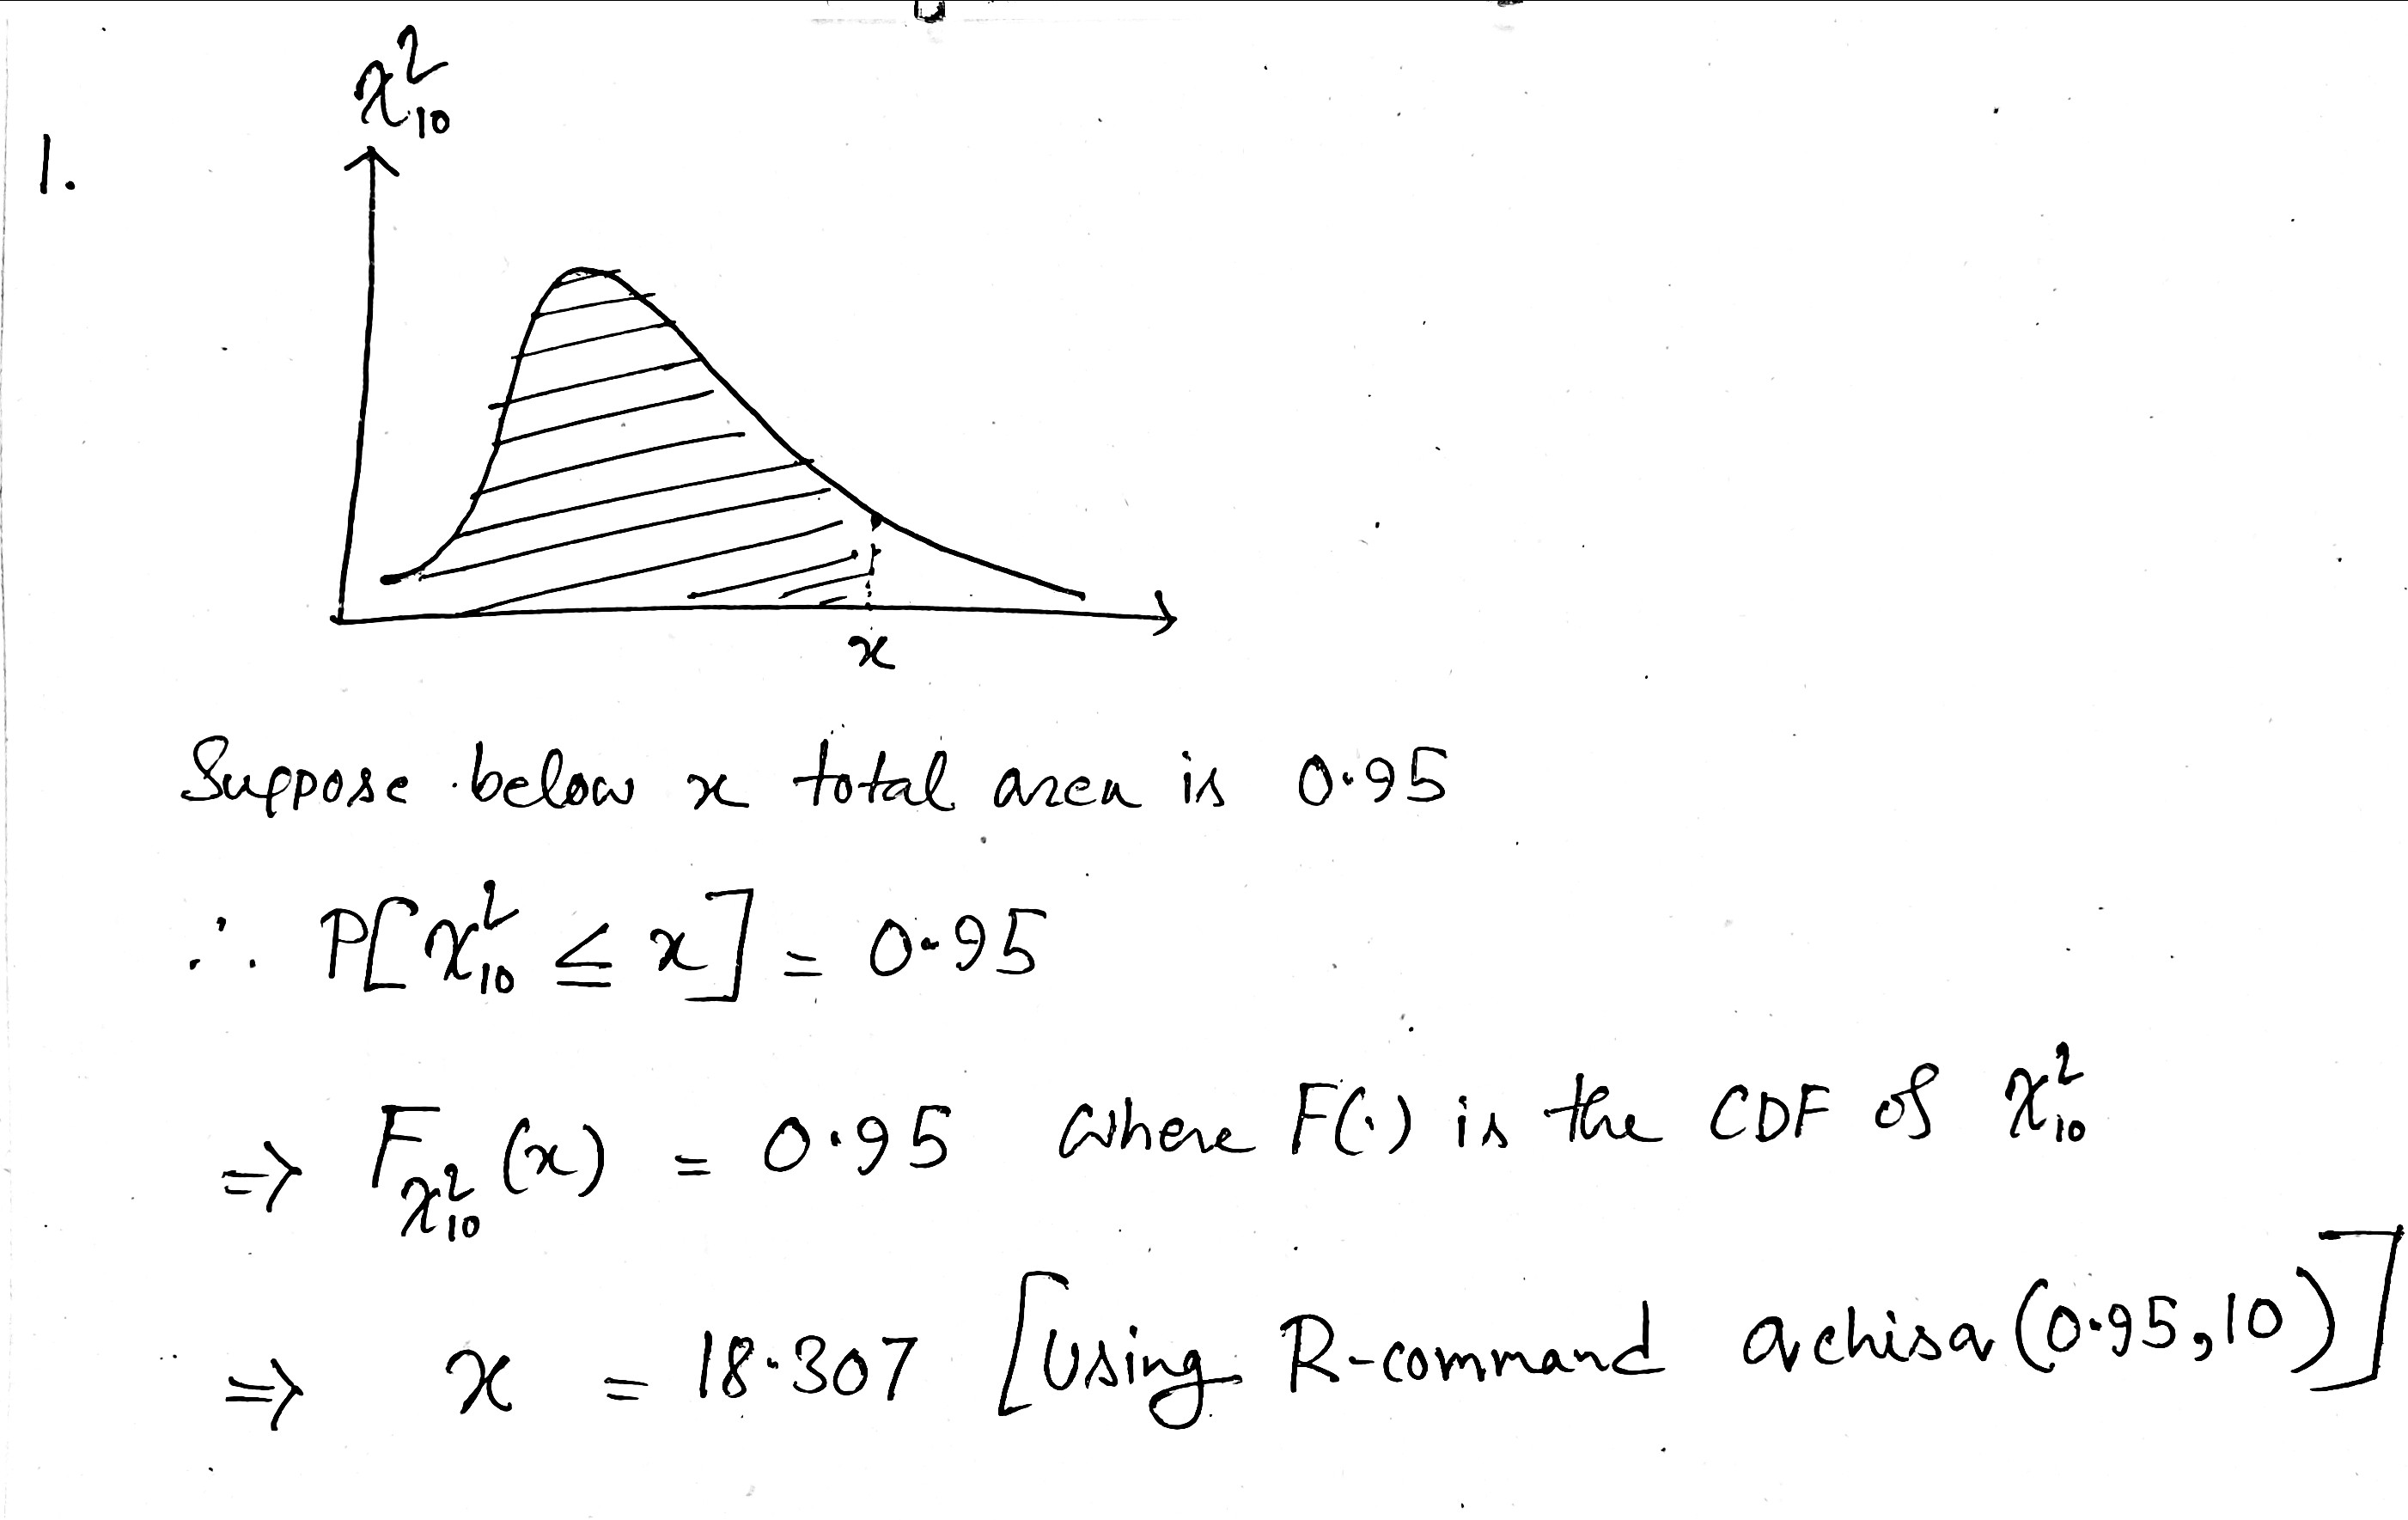 χ²₁₀
1.
x
Suppose below x total area is 0.95
∴ P[χ²₁₀ ≤ x] = 0.95
⇒ F_χ²₁₀ (x) = 0.95 where F(.) is the CDF of χ²₁₀
⇒ x = 18.307 [Using R-command qchisq(0.95,10)]